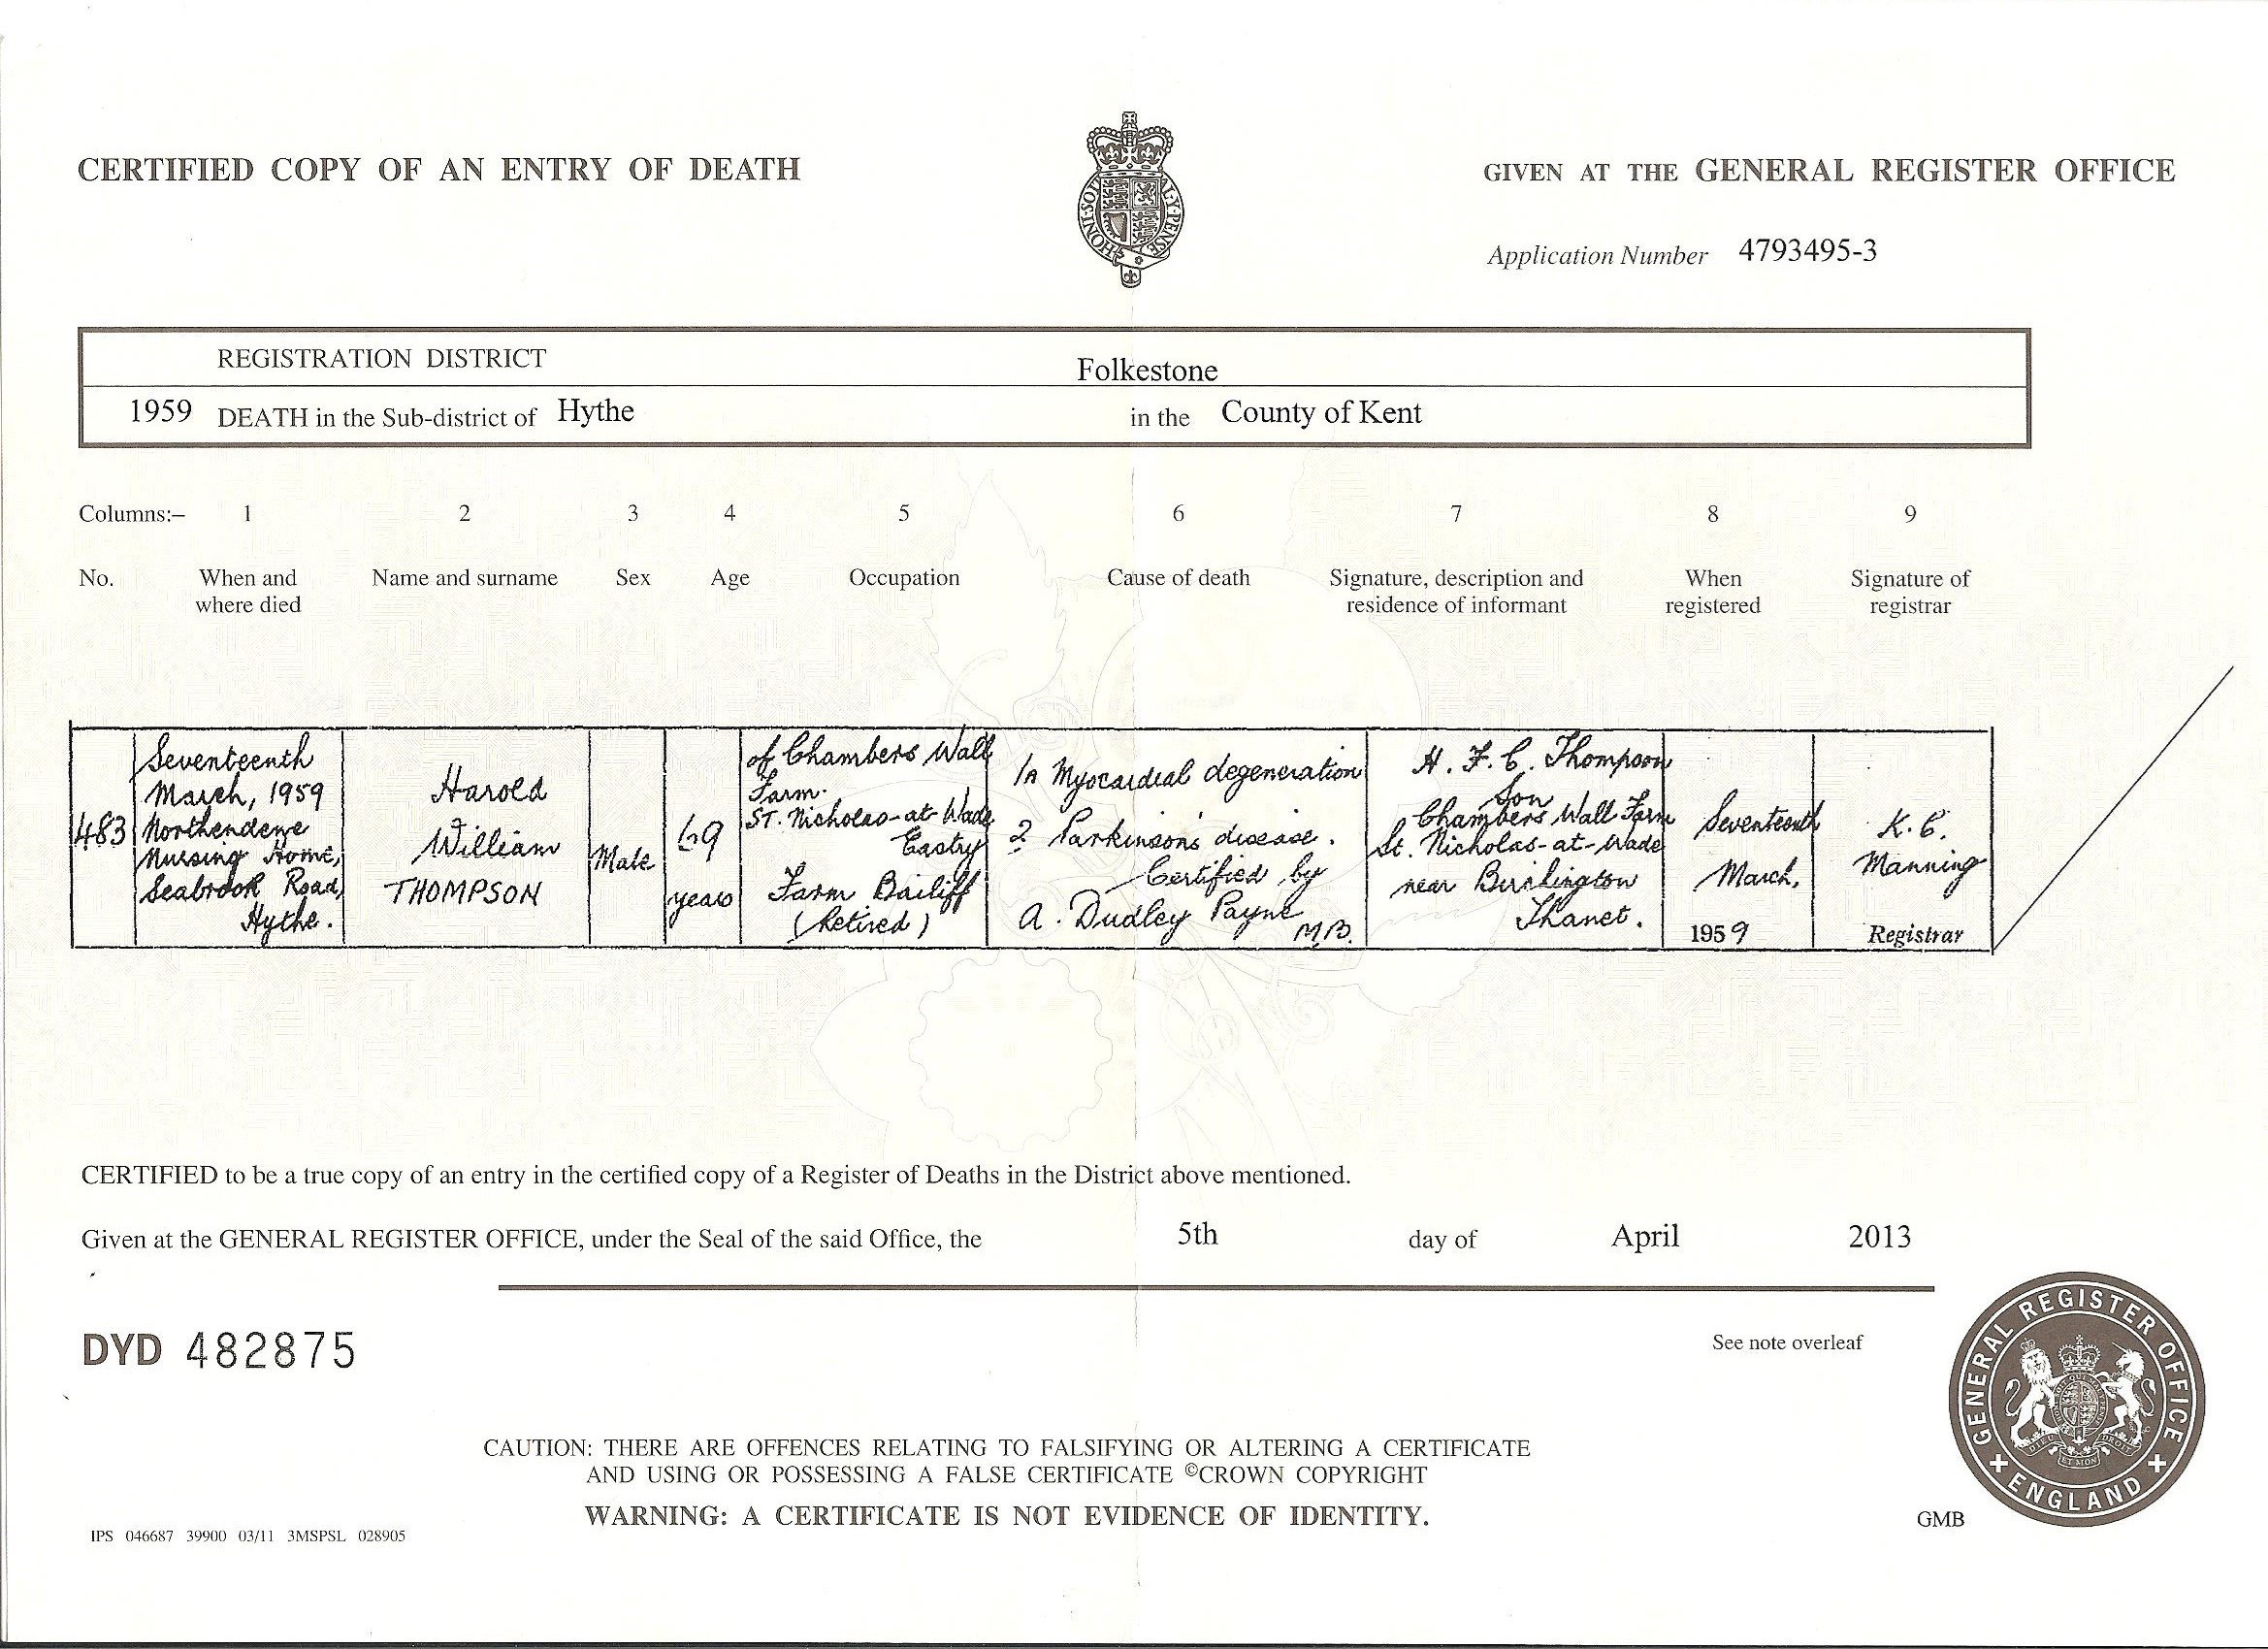 CERTIFIED COPY OF AN ENTRY OF DEATH
HONI·SOIT
AL·Y·PENSE
GIVEN AT THE GENERAL REGISTER OFFICE
Application Number 4793495-3
REGISTRATION DISTRICT Folkestone
1959 DEATH in the Sub-district of Hythe in the County of Kent
Columns:– 1 2 3 4 5 6 7 8 9
No. When and where died
Name and surname
Sex
Age
Occupation
Cause of death
Signature, description and
residence of informant
When
registered
Signature of
registrar
483
Seventeenth
March, 1959
Nursing Home,
Seabrook Road,
Hythe.
Harold
William
THOMPSON
Male
69
years
of Chambers Wall
Farm.
ST. Nicholas-at-Wade
Eastry
Farm Bailiff
(Retired)
1A Myocardial degeneration
2 Parkinson's disease.
Certified by
A. Dudley Payne
M.B.
H. F. C. Thompson
Son
Chambers Wall Farm
St. Nicholas-at-Wade
near Birchington
Thanet.
Seventeenth
March,
1959
K. C.
Manning
Registrar
CERTIFIED to be a true copy of an entry in the certified copy of a Register of Deaths in the District above mentioned.
Given at the GENERAL REGISTER OFFICE, under the Seal of the said Office, the 5th day of April 2013
DYD 482875
See note overleaf
GENERAL REGISTER OFFICE
ENGLAND
CAUTION: THERE ARE OFFENCES RELATING TO FALSIFYING OR ALTERING A CERTIFICATE
AND USING OR POSSESSING A FALSE CERTIFICATE ©CROWN COPYRIGHT
WARNING: A CERTIFICATE IS NOT EVIDENCE OF IDENTITY.
IPS 046687 39900 03/11 3MSPSL 028905
GMB